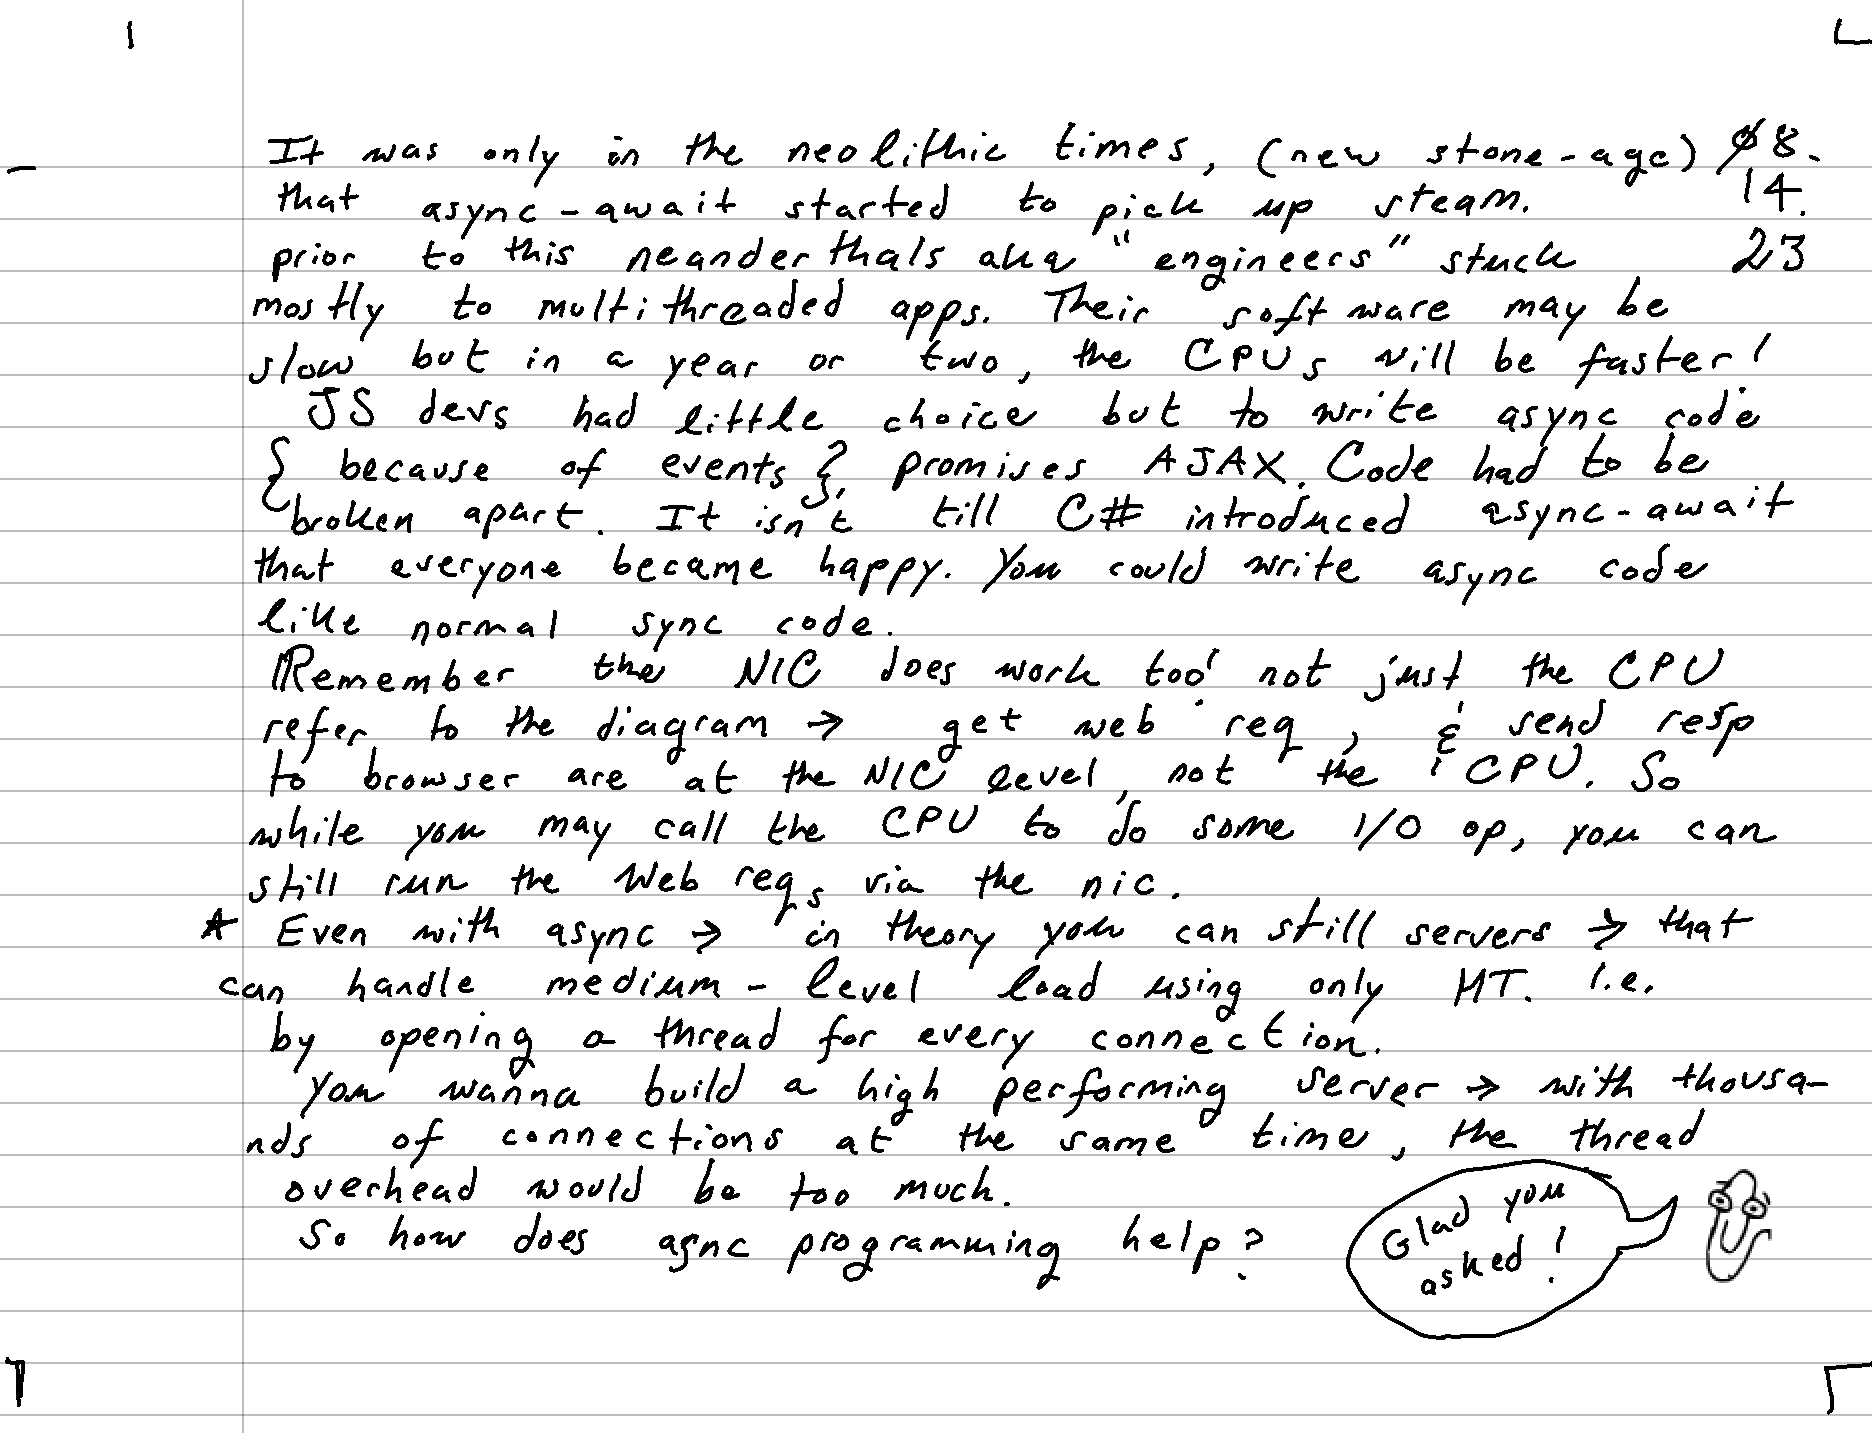 It was only in the neolithic times, (new stone-age) $8.
that async-await started to pick up steam. 14.
prior to this neanderthals aka "engineers" stuck 23
mostly to multithreaded apps. Their software may be
slow but in a year or two, the CPUs will be faster!
JS devs had little choice but to write async code
{ because of events }, promises AJAX. Code had to be
broken apart. It isn't till C# introduced async-await
that everyone became happy. You could write async code
like normal sync code.
Remember the NIC does work too! not just the CPU
refer to the diagram → get web req, & send resp
to browser are at the NIC level, not the CPU. So
while you may call the CPU to do some I/O op, you can
still run the Web reqs via the nic.
* Even with async → in theory you can still servers → that
can handle medium-level load using only MT. I.e.
by opening a thread for every connection.
You wanna build a high performing server → with thousa-
nds of connections at the same time, the thread
overhead would be too much.
So how does agnc programming help?
Glad you
asked!